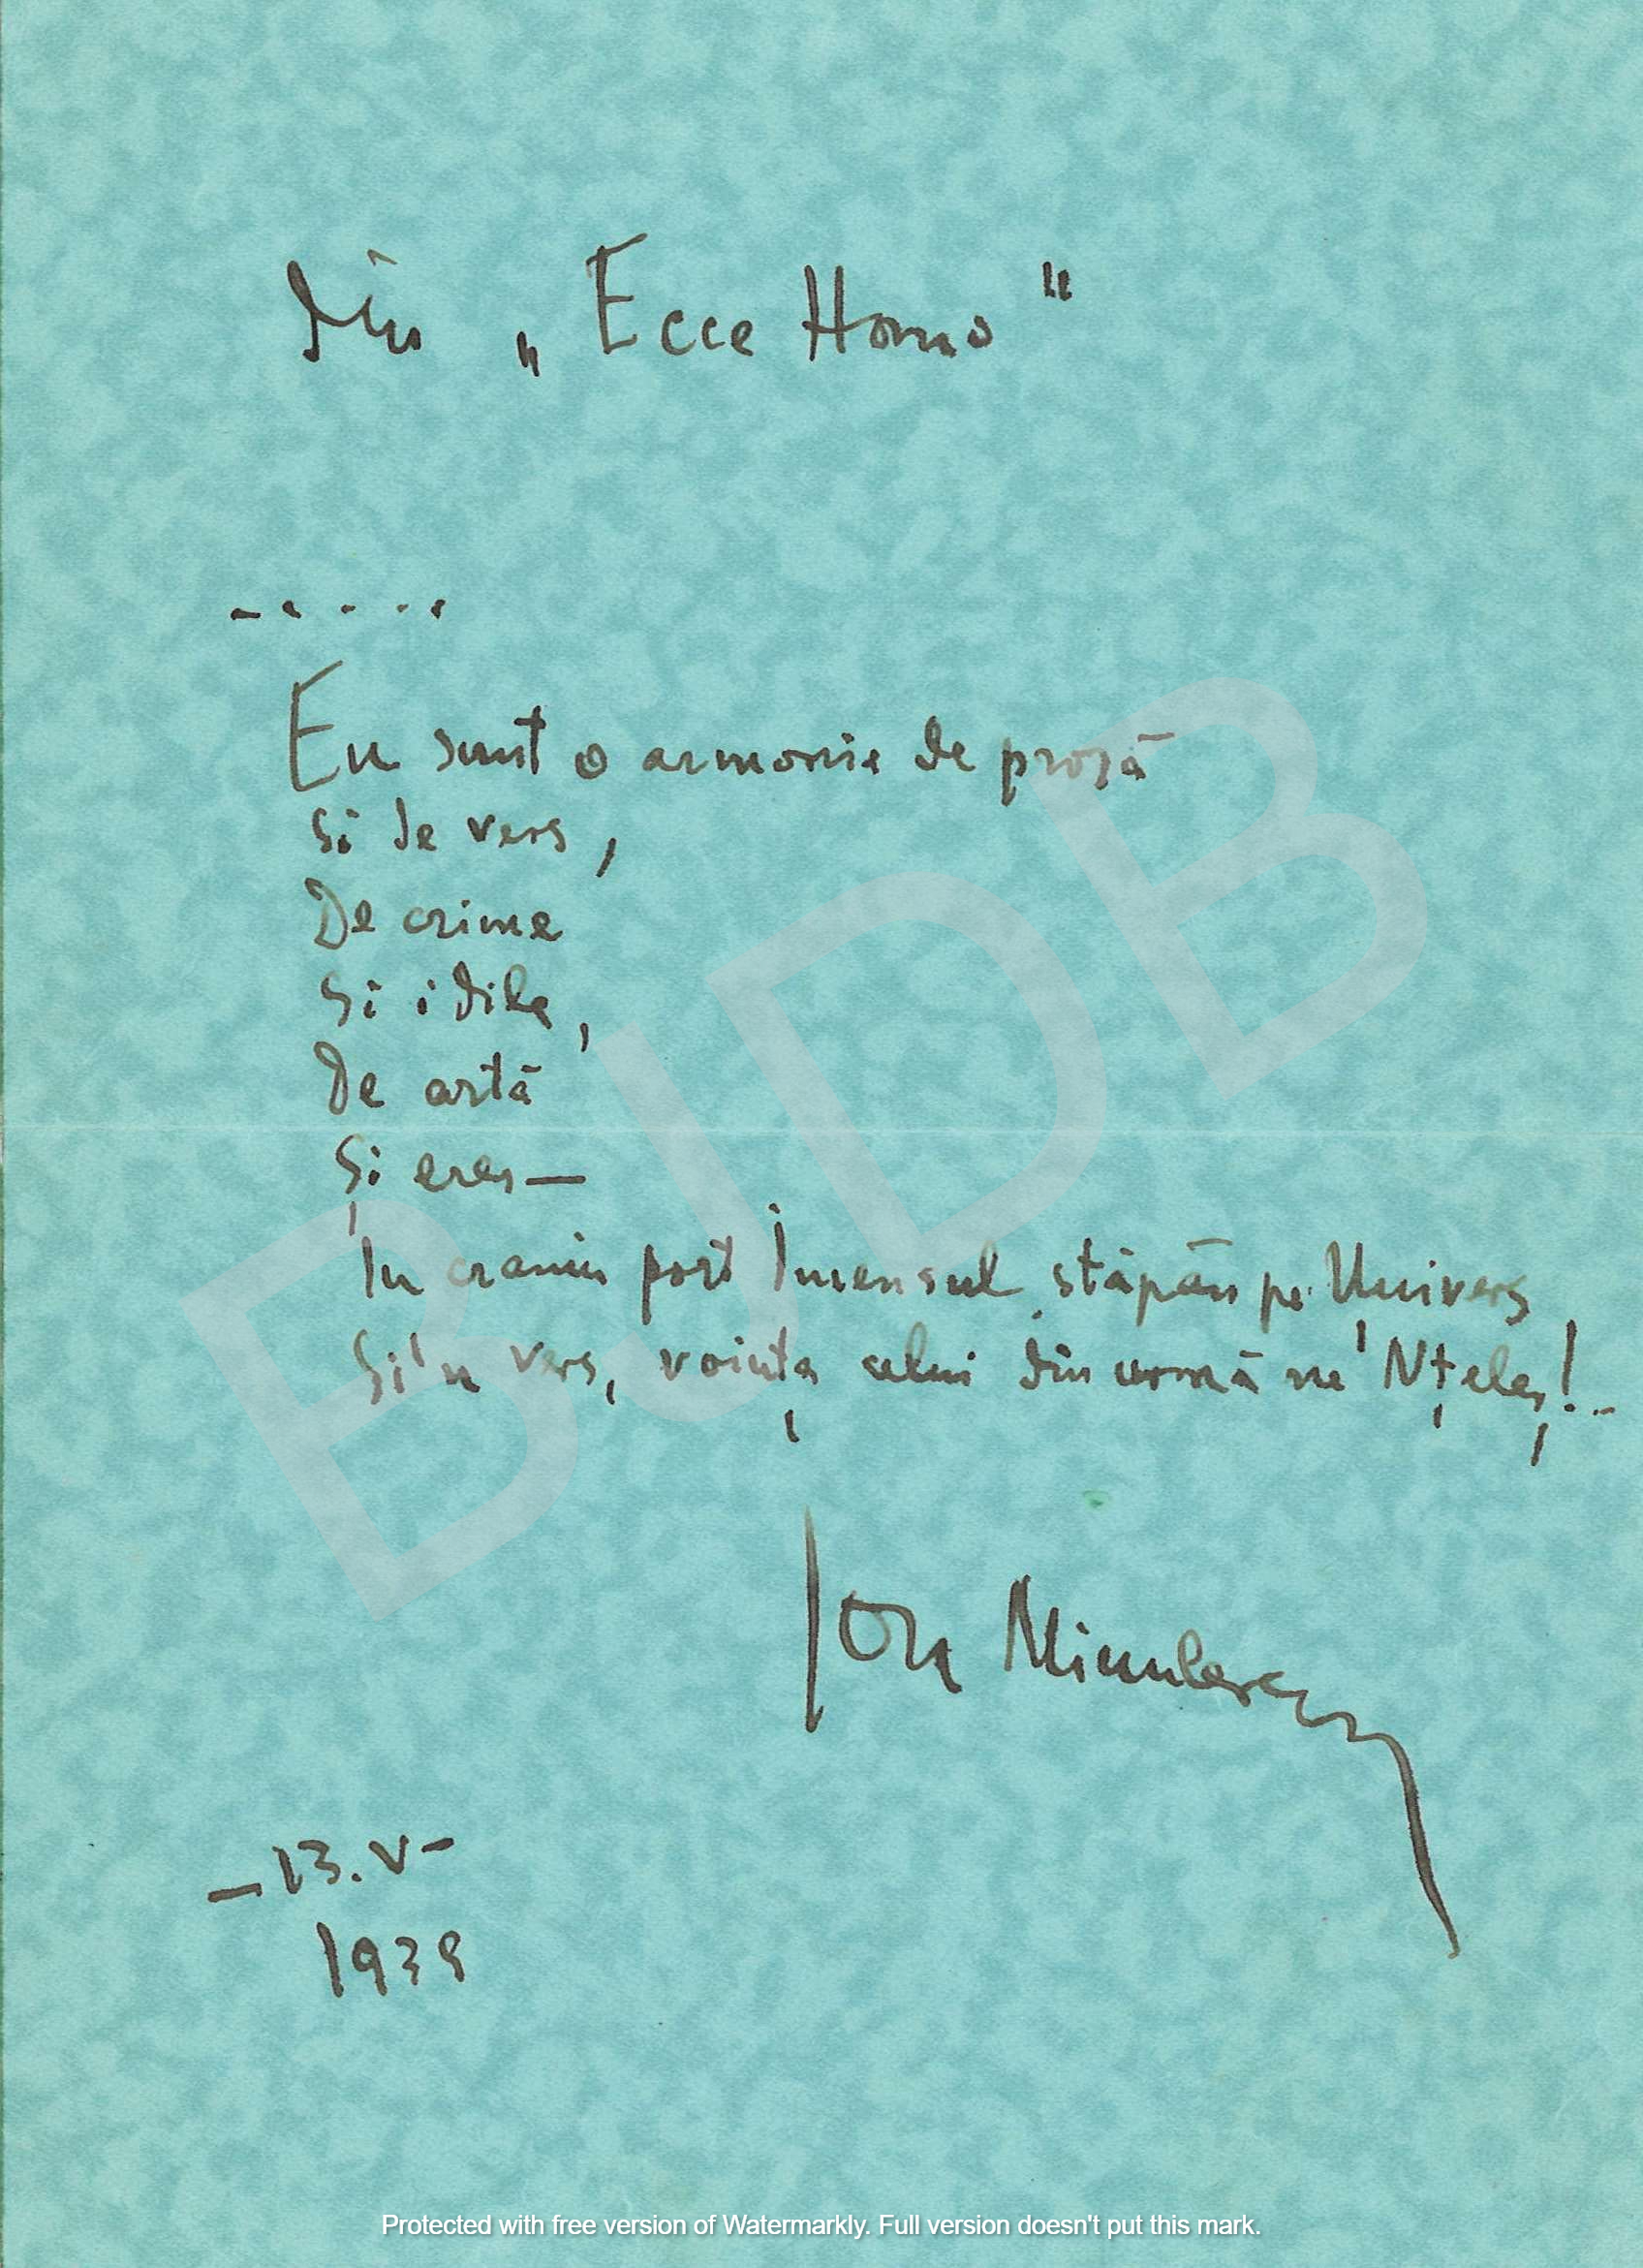 din „Ecce Homo"
.....
Eu sunt o armonie de proză
Si de vers,
De crime
Si idile,
De artă
Și eres—
In craniu port Imensul stăpân pe Univers
Si'n vers, voința celui din urmă ne'Nțeles!..
Ion Minulescu
–13.V–
1939
BJDB
Protected with free version of Watermarkly. Full version doesn't put this mark.